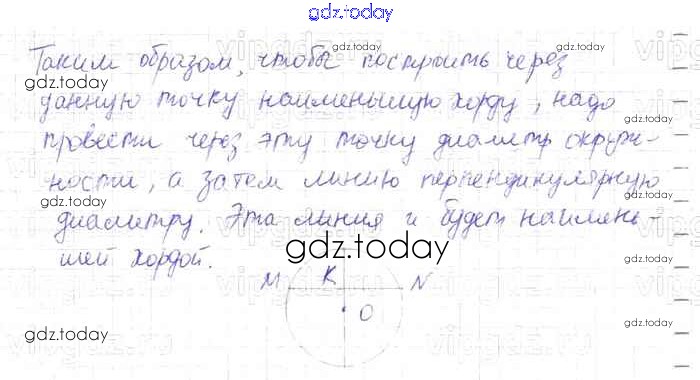 gdz.today
Таким образом, чтобы построить через
данную точку наименьшую хорду, надо
провести через эту точку диаметр окруж-
ности, а затем линию перпендикулярную
диаметру. Эта линия и будет наимень-
шей хордой.
gdz.today
M K N
O
gdz.today
gdz.today
gdz.today
gdz.today
gdz.today
gdz.today
gdz.today
gdz.today